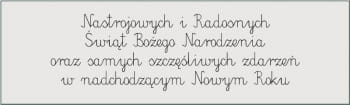 Nastrojowych i Radosnych
Świąt Bożego Narodzenia
oraz samych szczęśliwych zdarzeń
w nadchodzącym Nowym Roku